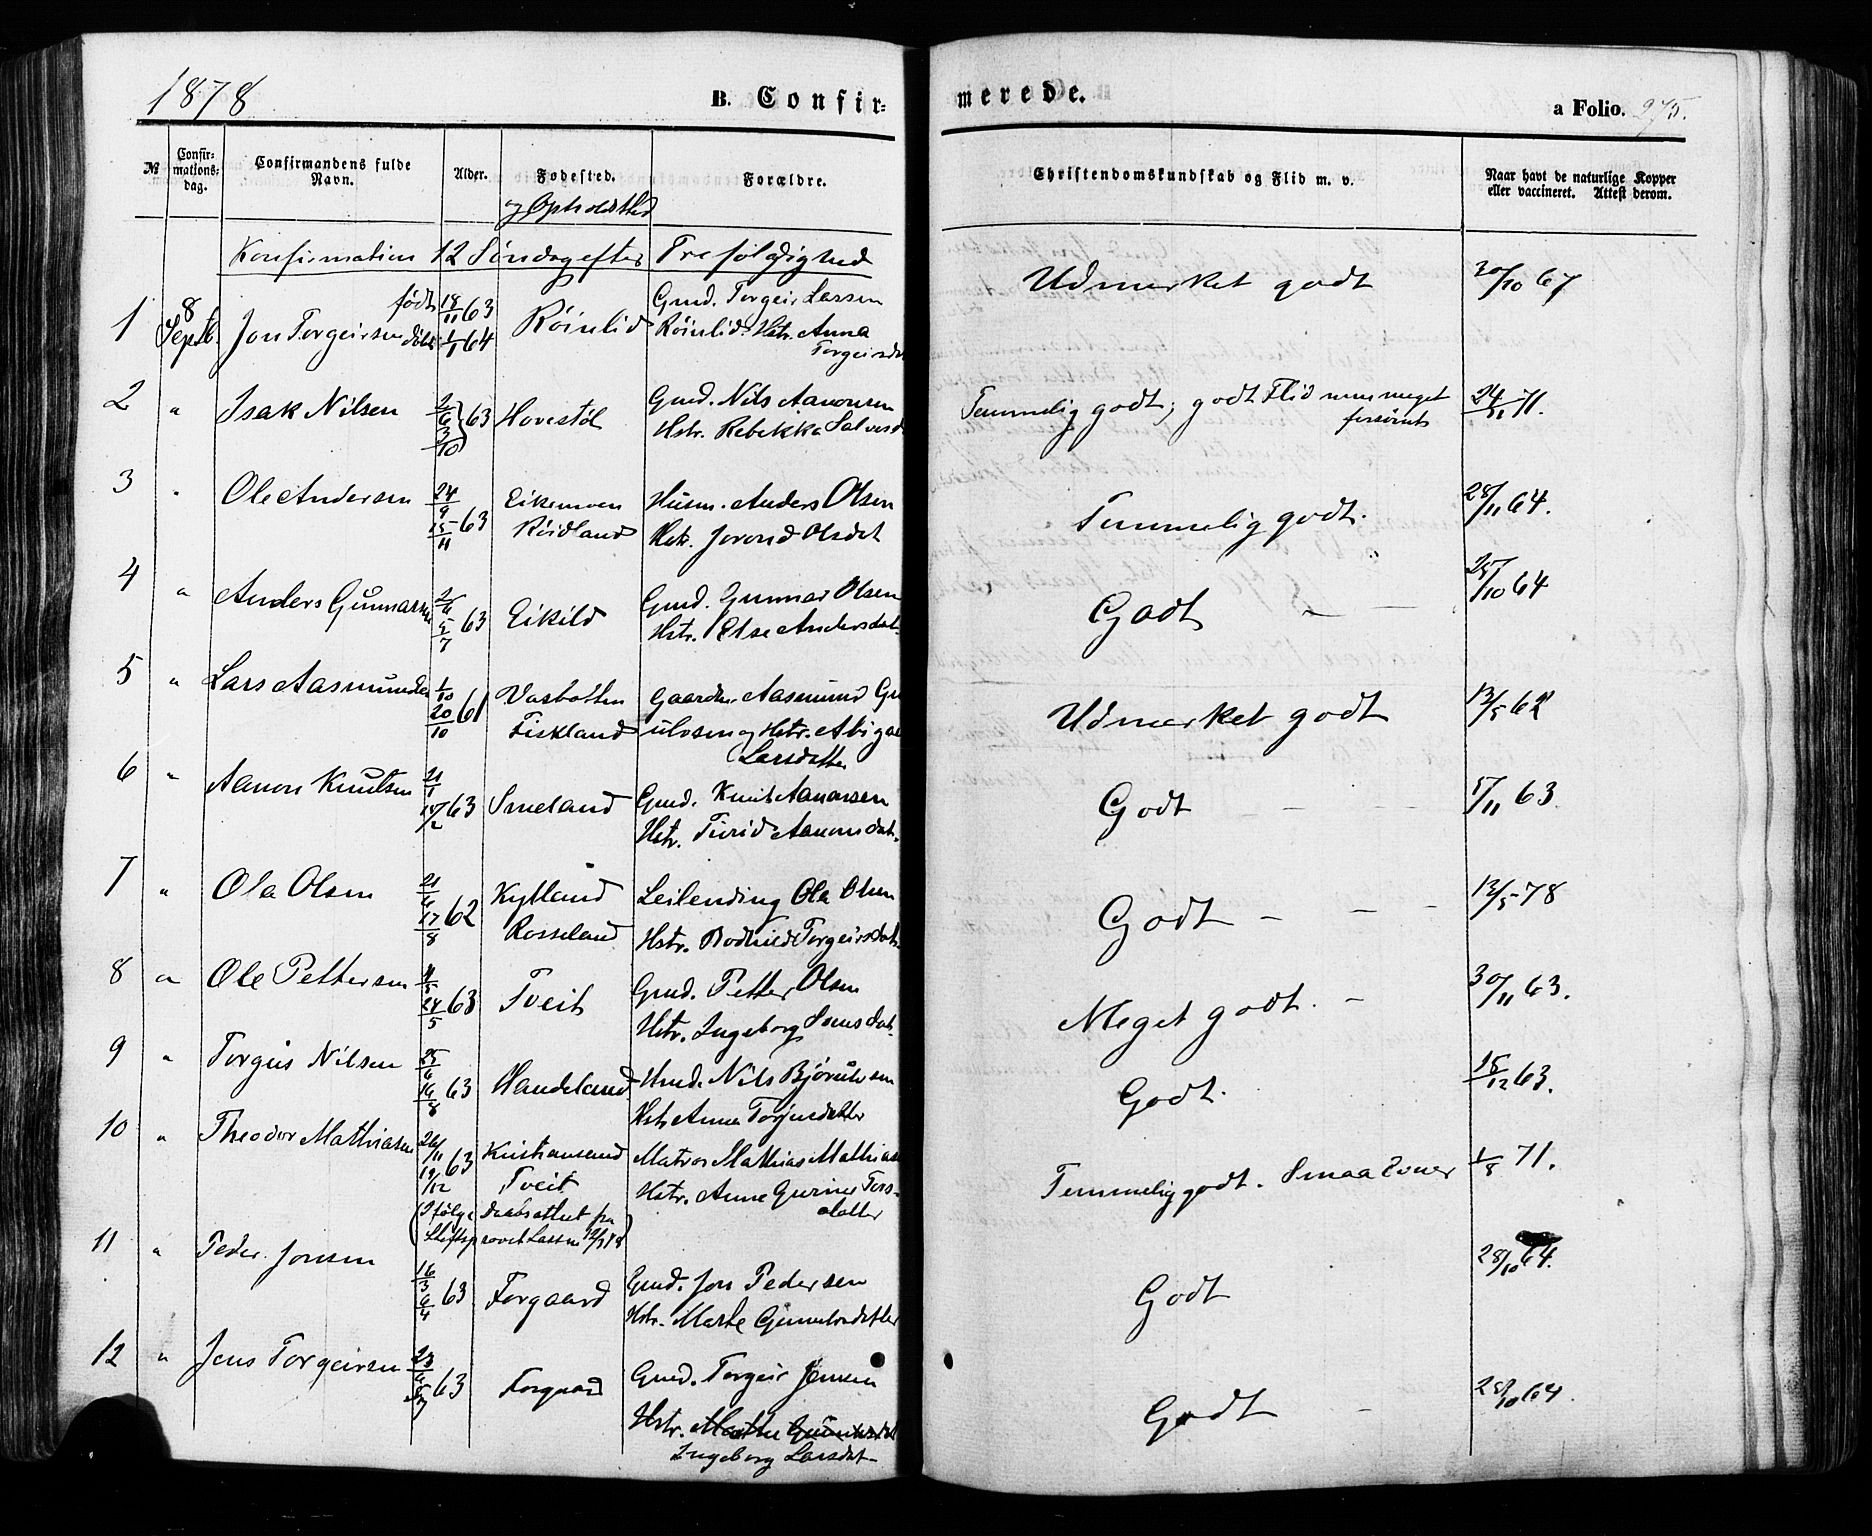 1878
B. Confir-
merede.
a Folio. 275.
№
Confir-
mations-
dag.
Confirmandens fulde
Navn.
Alder.
Fødested.
og Opholdsted
Forældre.
Christendomskundskab og Flid m. v.
Naar havt de naturlige Kopper
eller vaccineret. Attest derom.
Konfirmation 12 Söndag efter Trefoldighed
1 8 Septb. Jon Torgeirsen født 18/11 63 døbt 1/1 64 Röinlid Gmd. Torgeir Larsen
Röinlid. Hstr. Anna
Torgeirsdt
Udmerket godt 30/10 67
2 " Isak Nilsen 63 Hovestöl Gmd. Nils Aanonsen
Hstr. Rebekka Salvesd
Temmelig godt; godt Flid men meget
forsömt
24/11 71.
3 " Ole Andersen 24/9 15/11 63 Eikemoen
Röidland
Husm. Anders Olsen
Hstr. Jorond Olsdat
Temmelig godt. 28/11 64.
4 " Anders Gunnarsen 2/6 5/7 63 Eikild Gmd. Gunnar Olsen
Hstr. Else Andersdat.
Godt 25/10 64
5 " Lars Aasmundsen 1/10 20/10 61 Vasbotten
Fiskland
Gaardm. Aasmund Gu
ulvsen og Hstr. Abigae
Larsdatter
Udmerket godt 13/5 62
6 " Aanon Knutsen 63 Smeland Gmd. Knut Aanonsen
Hstr. Turid Aanonsdat.
Godt 5/11 63
7 " Ola Olsen 21/6 17/8 62 Kylland
Rosseland
Leilending Ola Olsen
Hstr. Bodhild Torgeirsdat.
Godt 13/5 78
8 " Ole Pettersen 4/5 24/5 63 Tveit Gmd. Petter Olsen
Hstr. Ingeborg Svensdat.
Meget godt. 30/11 63.
9 " Torgus Nilsen 25/6 16/8 63 Haugeland Gmd. Nils Björulvsen
Hstr Anna Torjusdatter
Godt. 18/12 63.
10 " Theodor Mathiasen 26/11 19/12 63 Kristiansand
Tveit
Matros Mathias Mathias
Hstr. Anne Gurine Tors-
datter
(Ifölge Daabsattest fra
Stiftsprovst Lassen 12/3 78)
Temmelig godt. Smaa Evner 1/8 71.
11 " Peder Jonsen 16/3 6/4 63 Forgaard Gmd. Jon Pedersen
Hstr. Marte Gunvaldsdatter
Godt 28/10 64.
12 " Jens Torgeirsen 63 Forgaard Gmd. Torgeir Jensen
Hstr. Marthe
Ingeborg Larsdat
Godt 28/10 64.